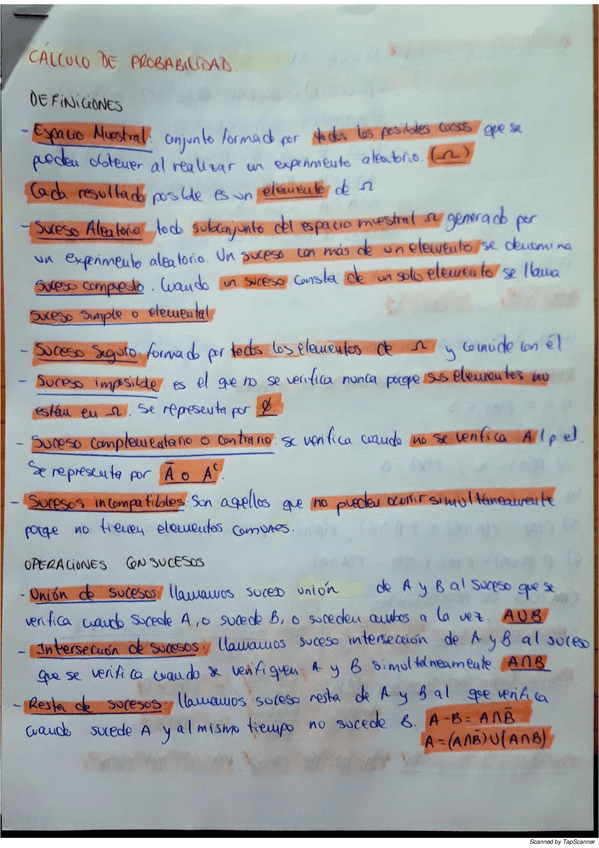 CÁLCULO DE PROBABILIDAD.
DEFINICIONES
- Espacio Muestral: conjunto formado por todos los posibles casos que se
pueden obtener al realizar un experimento aleatorio. (Ω)
Cada resultado posible es un elemento de Ω
- Suceso Aleatorio: todo subconjunto del espacio muestral Ω generado por
un experimento aleatorio. Un suceso con más de un elemento se denomina
suceso compuesto. Cuando un suceso consta de un solo elemento se llama
suceso simple o elemental
- Suceso Seguro: formado por todos los elementos de Ω y coincide con él
- Suceso imposible es el que no se verifica nunca porque sus elementos no
están en Ω. Se representa por Ø
- Suceso complementario o contrario: se verifica cuando no se verifica A (p.e).
Se representa por Ā o Aᶜ.
- Sucesos incompatibles: Son aquellos que no pueden ocurrir simultáneamente
porque no tienen elementos comunes.
OPERACIONES CON SUCESOS
- Unión de sucesos: llamamos suceso unión de A y B al suceso que se
verifica cuando sucede A, o sucede B, o suceden ambos a la vez. A∪B
- Intersección de sucesos: llamamos suceso intersección de A y B al suceso
que se verifica cuando se verifiquen A y B simultáneamente. A∩B
- Resta de sucesos: llamamos suceso resta de A y B al que verifica
cuando sucede A y al mismo tiempo no sucede B. A-B = A∩B̄
A=(A∩B̄)∪(A∩B)
Scanned by TapScanner